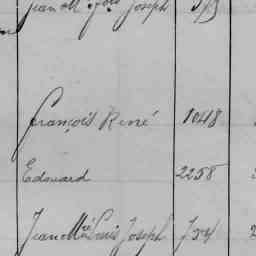 Jean M. fois Joseph
françois René 1048
Edouard 2258
Jean Mie Louis Joseph 754